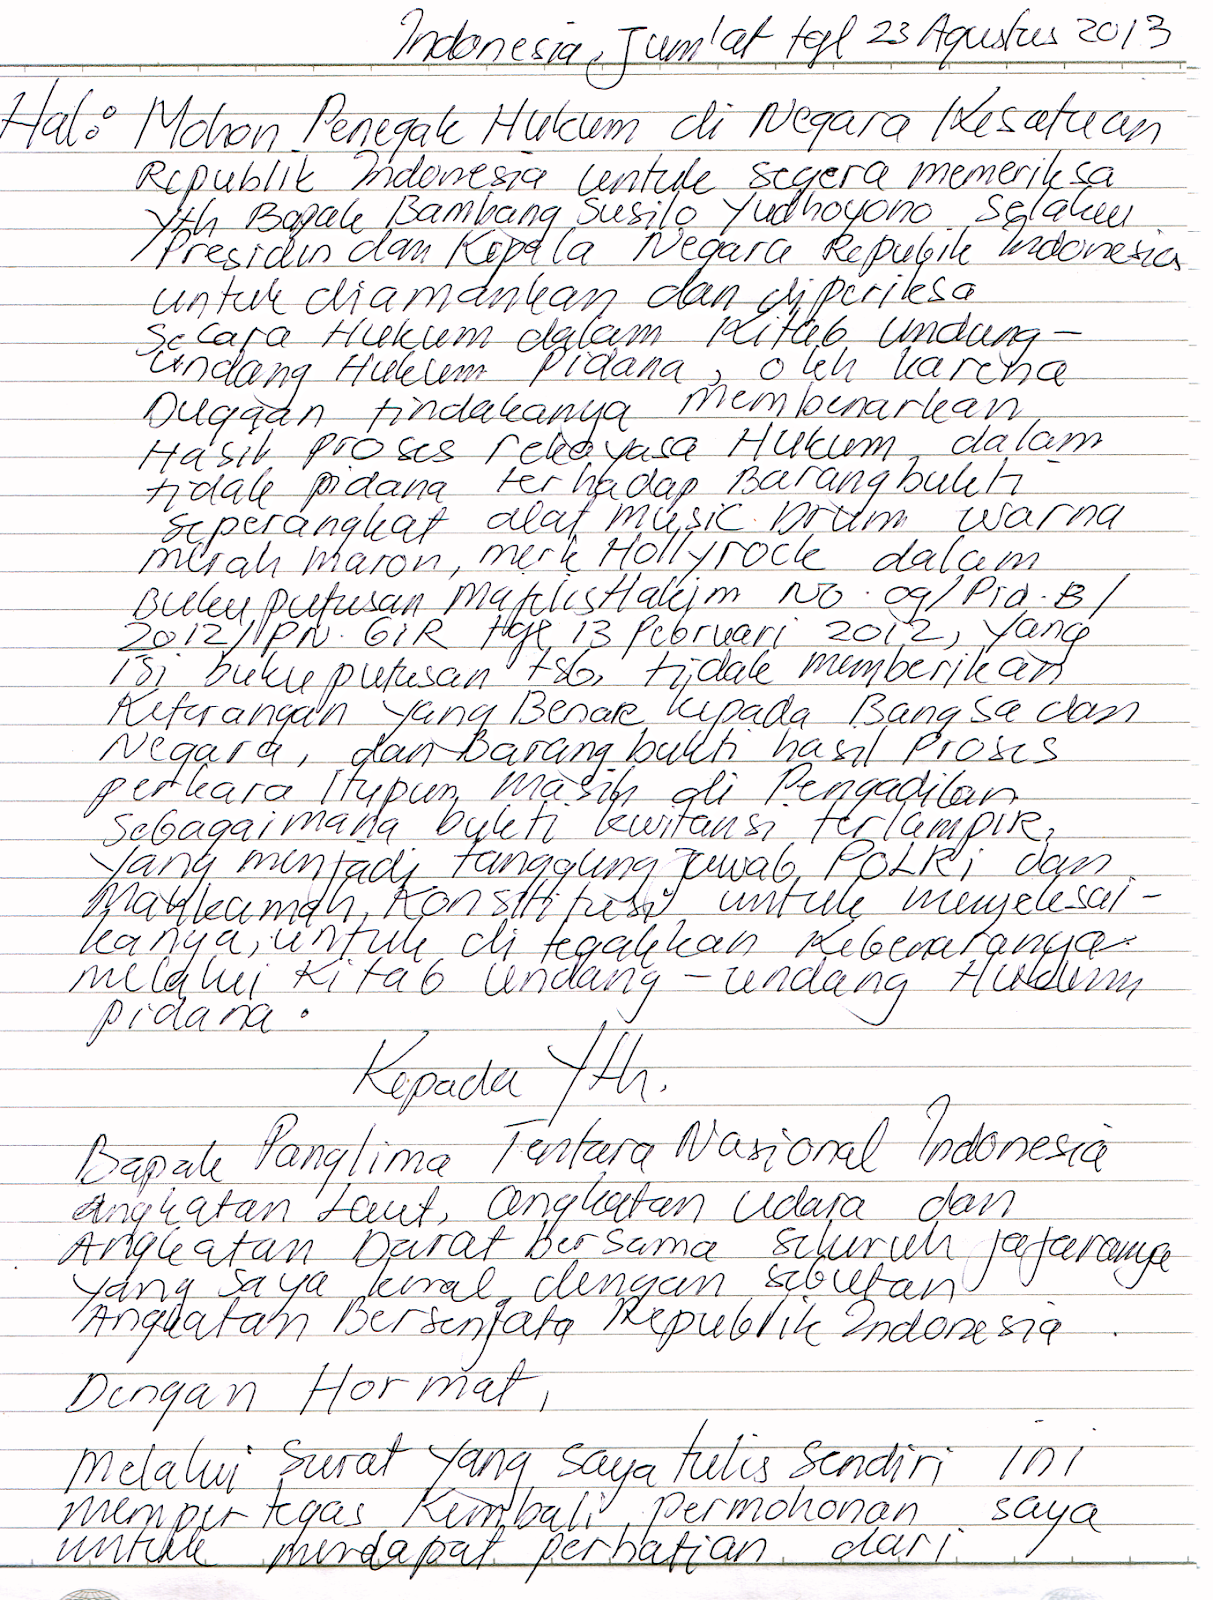 Indonesia, Jum'at tgl 23 Agustus 2013
Hal : Mohon Penegak Hukum di Negara Kesatuan
Republik Indonesia untuk segera memeriksa
Yth Bapak Bambang Susilo Yudhoyono selaku
Presiden dan Kepala Negara Republik Indonesia
untuk diamankan dan diperiksa
secara Hukum dalam Kitab undang-
undang Hukum Pidana, oleh karena
Dugaan tindakanya membenarkan
Hasil proses rekayasa Hukum dalam
tidak pidana terhadap Barang bukti
seperangkat alat music Drum warna
merah maron, merk Hollyrock dalam
Buku putusan Majelis Hakim No. 09/Pid.B/
2012/PN.GIR tgl 13 Pebruari 2012, yang
isi buku putusan tsb, tidak memberikan
Keterangan yang Benar kepada Bangsa dan
Negara, dan Barang bukti hasil Proses
perkara Itupun masih di Pengadilan
sebagaimana bukti kwitansi terlampir,
yang menjadi tanggung jawab POLRI dan
Mahkamah Konstitusi untuk menyelesai-
kanya, untuk di tegakkan kebenaranya
melalui Kitab undang-undang Hukum
pidana.
Kepada Yth.
Bapak Panglima Tentara Nasional Indonesia
Angkatan Laut, Angkatan udara dan
Angkatan Darat bersama seluruh jajaranya
yang saya kenal dengan sebutan
Angkatan Bersenjata Republik Indonesia.
Dengan Hormat,
Melalui surat yang saya tulis sendiri ini
mempertegas kembali permohonan saya
untuk mendapat perhatian dari